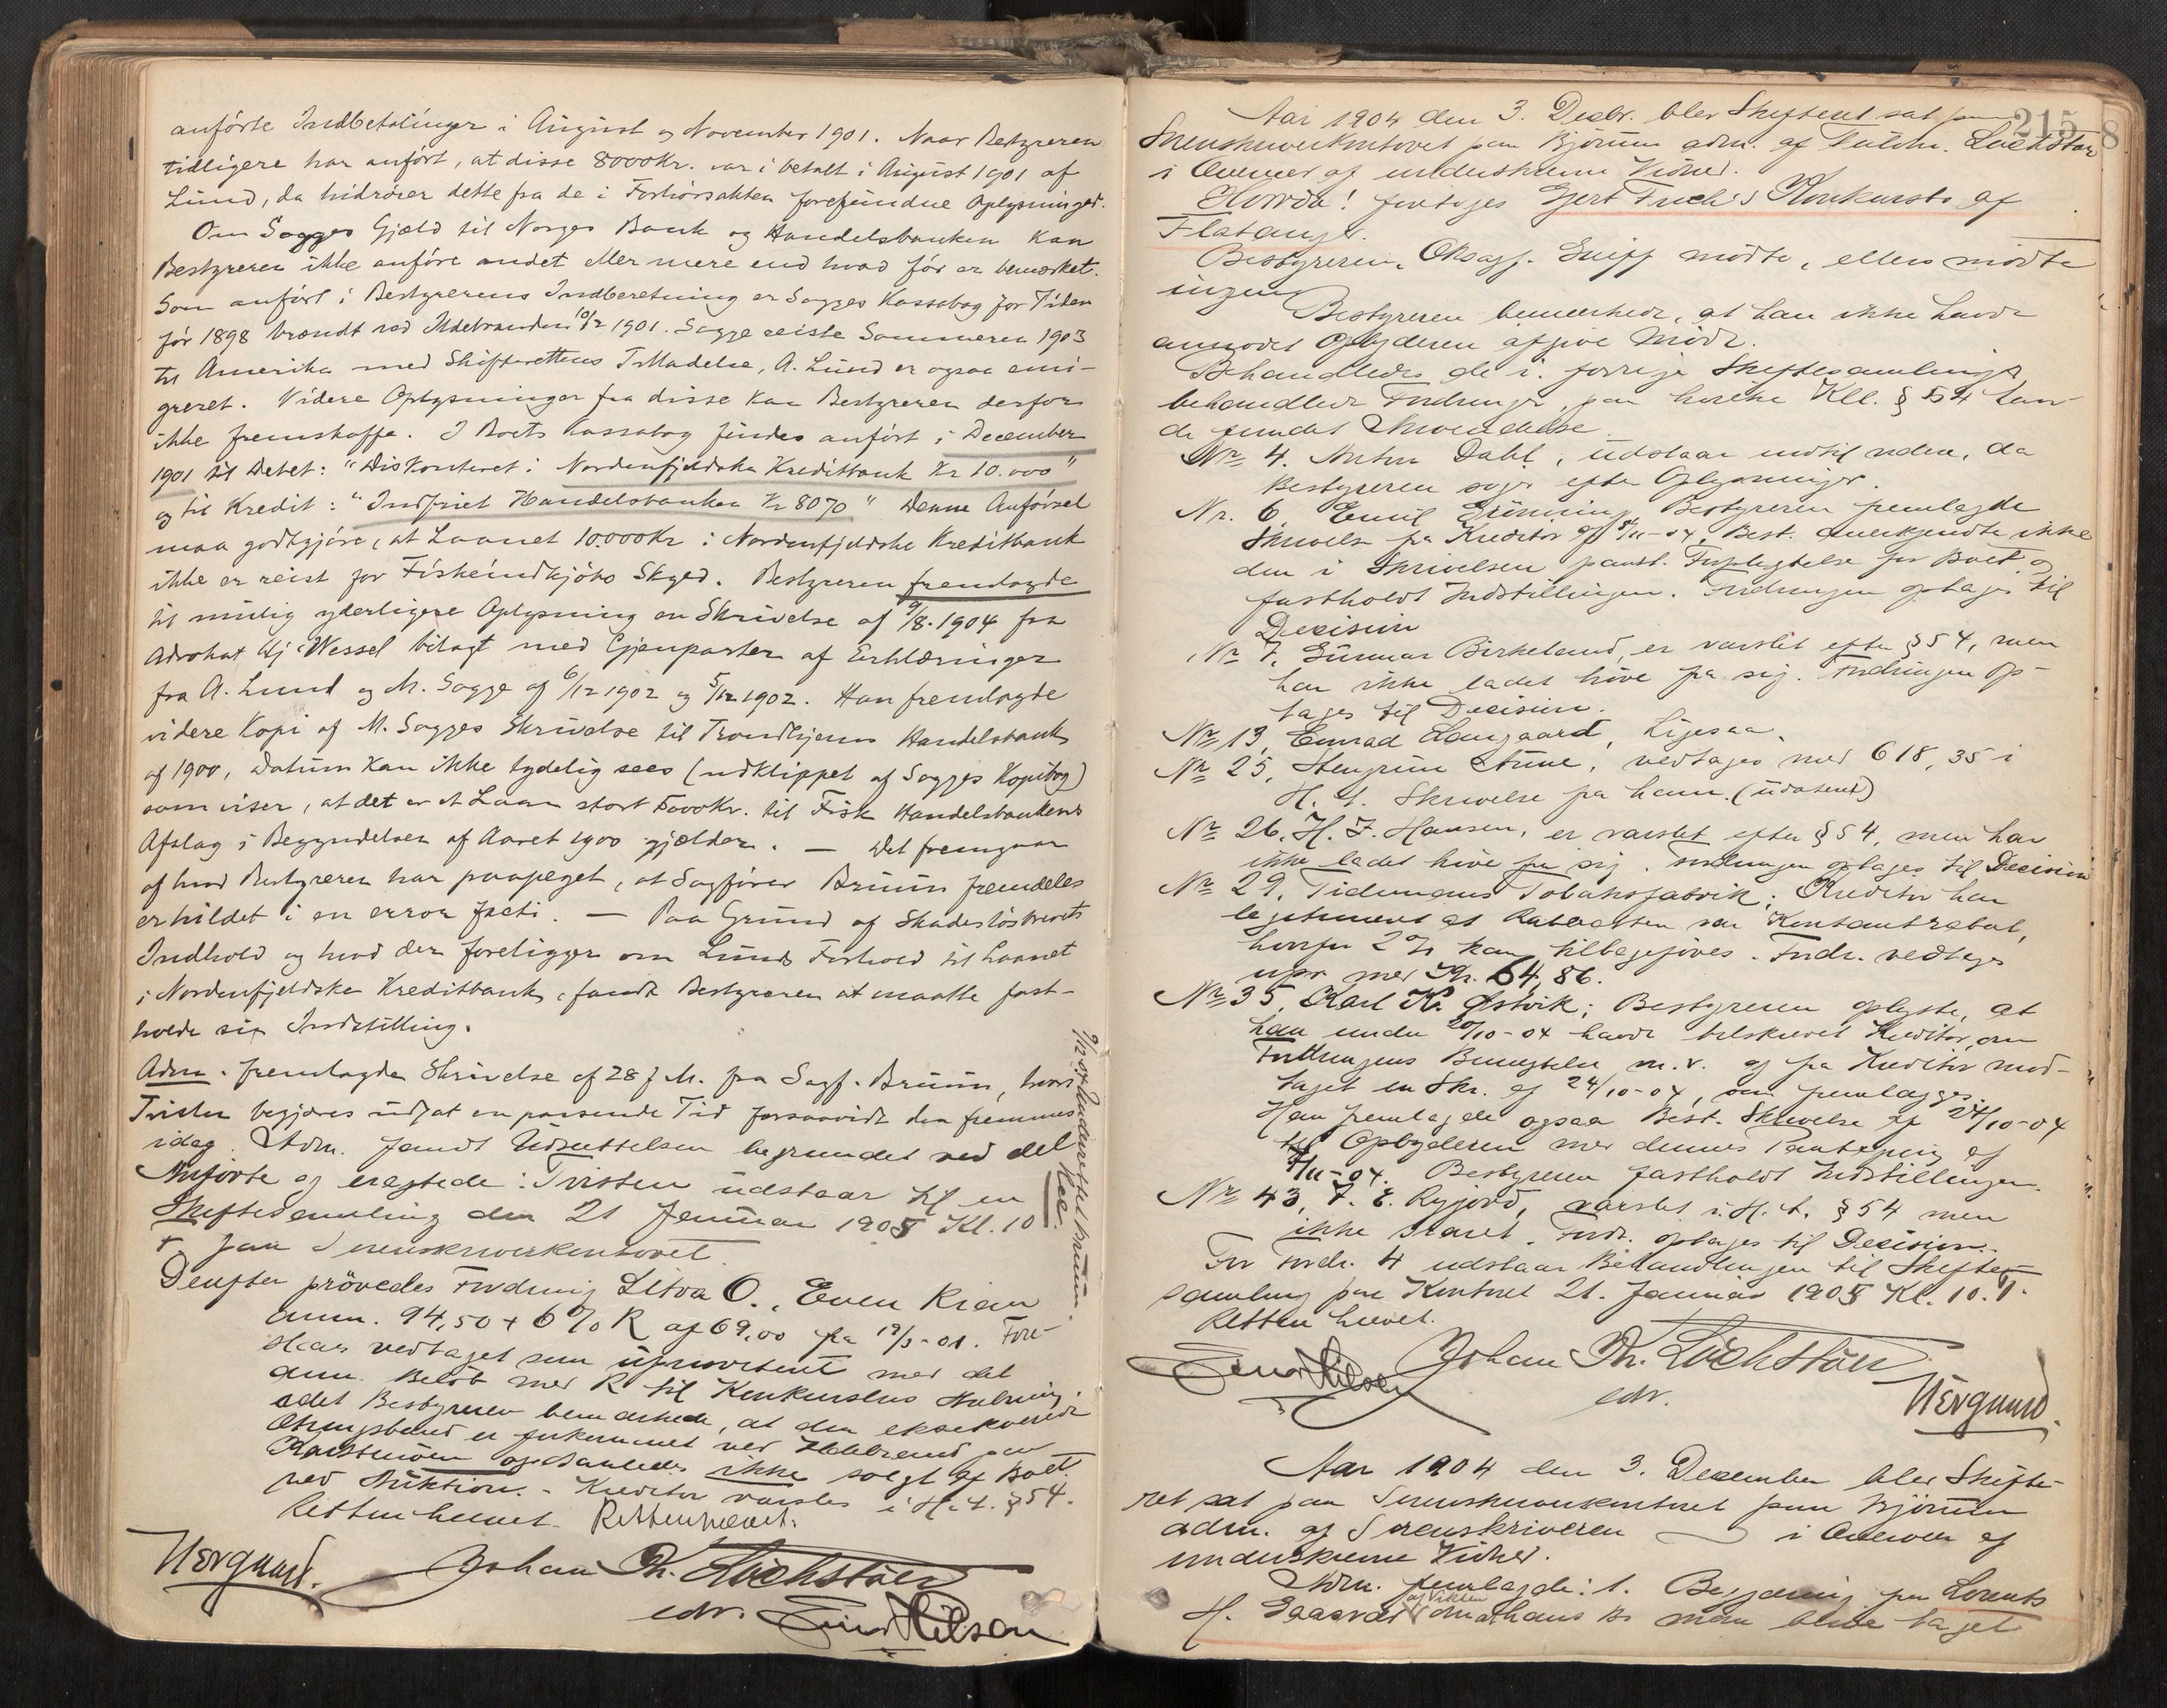 anførte Indbetalinger i August og November 1901. Naar Bestyreren
tidligere har anført, at disse 8000 Kr. var i betalt i August 1901 af
Lund, da hidrører dette fra de i Forhørsakten forefundne Oplysninger.
Om Sagges Gjæld til Norges Bank og Handelsbanken kan
Bestyreren ikke anføre andet eller mere end hvad før er bemærket.
Som anført i Bestyrerens Indberetning er Sagges Kassabog for Tiden
før 1898 brændt ved Ildebranden 1901. Sagge reiste Sommeren 1903
til Amerika med Skifterettens Tilladelse, A. Lund er ogsaa emi-
greret. Videre Oplysninger fra disse kan Bestyreren derfor
ikke fremskaffe. I Boets Kassabog findes anført i December
1901 til Debet: "Diskonteret i Nordenfjeldske Kreditbank Kr 10.000"
og til Kredit: "Indfriet Handelsbanken Kr 8070" Denne Anførsel
maa godtgjøre, at Laanet 10.000 Kr i Nordenfjeldske Kreditbank
ikke er reist for Fiskeindkjøbs Skyld. Bestyreren fremlagde
til mulig yderligere Oplysning en Skrivelse af 9/8. 1904 fra
Advokat Hj. Wessel bilagt med Gjenparter af Erklæringer
fra A. Lund og M. Sagge af 6/12 1902 og 5/12 1902. Han fremlagde
videre Kopi af M. Sagges Skrivelse til Trondhjems Handelsbank
af 1900, Datum kan ikke tydelig sees (udklippet af Sagges Kopibog)
som viser, at det er et Laan stort 5000 Kr. til Fisk Handelsbankens
Afslag i Begyndelsen af Aaret 1900 gjælder. — Det fremgaar
af hvad Bestyreren har paapeget, at Sagfører Bruun fremdeles
er hildet i en error facti. — Paa Grund af Skadesløsbrevets
Indhold og hvad der foreligger om Lunds Forhold til Laanet
i Nordenfjeldske Kreditbank, fandt Bestyreren at maatte fast-
holde sin Indstilling.
Adm. fremlagde Skrivelse af 28 f. M. fra Sagf. Bruun, hvori
Tvisten begjæres udsat en passende Tid forsaavidt den fremmes
idag. Adm. fandt Udsættelsen begrundet ved det
Anførte og eragtede: Tvisten udstaar til en
Skiftesamling den 21 Januar 1905 Kl. 10
paa Sorenskriverkontoret.
Derefter prøvedes Fordring Litra O., Even Kiran
anm. 94,50 + 6 % R af 69,00 fra 19/3-01. Fore-
slaaes vedtaget som uprioritert med det
anm. Beløb med R til Konkursens Aabning,
idet Bestyreren bemærkede, at den eksekverede
er forkommet ved Ildebrand paa
og saaledes ikke solgt af Boet
ved Auktion. - Kreditor varsles i H. t. § 54.
Retten hævet. Retten hævet.
Wergaard. Johan Th. Lochstöer
edv. Einar Nilsen
underrettet Bruun.
215
8
Aar 1904 den 3. Decbr. blev Skifteret sat paa
Sorenskriverkontoret paa Bjørum adm. af Fuldm. Lochstöer
i Overvær af underskrevne Vidner.
Hvorda! foretoges Gjert Fuchs Konkursbo af
Flatanger.
Bestyreren, Oksagf. Sniff mødte, ellers mødte
ingen
Bestyreren bemærkede, at han ikke havde
anmodet Opbyderen afgive Møde.
Behandledes de i forrige Skiftesamlings
behandlede Fordringer, paa hvilke Kll. § 54 hav-
de fundet Anvendelse.
No 4. Anton Dahl, udstaar indtil videre, da
Bestyreren søger efter Oplysninger.
Nr. 6 Emil Grünning Bestyreren fremlagde
Skrivelse fra Kreditor af 8/11-04. Best. anerkjendte ikke
den i Skrivelsen paast. Forpligtelse for Boet og
fastholdt Indstillingen. Fordringen optages til
Decision
No 7, Gunnar Birkeland, er varslet efter § 54, men
har ikke ladet høre fra sig. Fordringen op-
tages til Decision.
No 13, Konrad Langaard, Ligesaa.
No 25, Stengrim Aune, vedtages med 618,35 i
H. t. Skrivelse fra ham. (udateret)
No 26, H. F. Hansen, er varslet efter § 54, men har
ikke ladet høre fra sig. Fordringen optages til Decision
No 29, Tidemans Tobaksfabrik; Kreditor har
legitimeret at Rabatten var Kontantrabat,
hvorfor 2 % kan tilbageføres. Fordr. vedtages
upr. med Kr. 64,86.
No 35, Karl Kr. Østvik; Bestyreren oplyste, at
han under 20/10-04 havde tilskrevet Kreditor om
Fordringens Benegtelse m. v. og fra Kreditor mod-
taget en Skr. af 24/10-04, som fremlægges.
Han fremlagde ogsaa Best. Skrivelse af 24/10-04
til Opbyderen med dennes Paategning af
/11-04. Bestyreren fastholdt Indstillingen.
No 43, F. E. Ryjord, varslet i H. t. § 54 men
ikke svaret. Fordr. optages til Decision.
For Fordr. 4 udstaar Behandlingen til Skifte-
samling paa Kontoret 21. Januar 1905 Kl. 10.
Retten hævet.
Einar Nilsen Johan Th. Lochstöer
edv. Wergaard.
Aar 1904 den 3. December blev Skifte-
ret sat paa Sorenskriverkontoret paa Bjørum
adm. af Sorenskriveren i Overvær af
underskrevne Vidner.
Adm. fremlagde: 1. Begjæring fra Lorents
H. af Vikten om at hans Bo maa blive taget